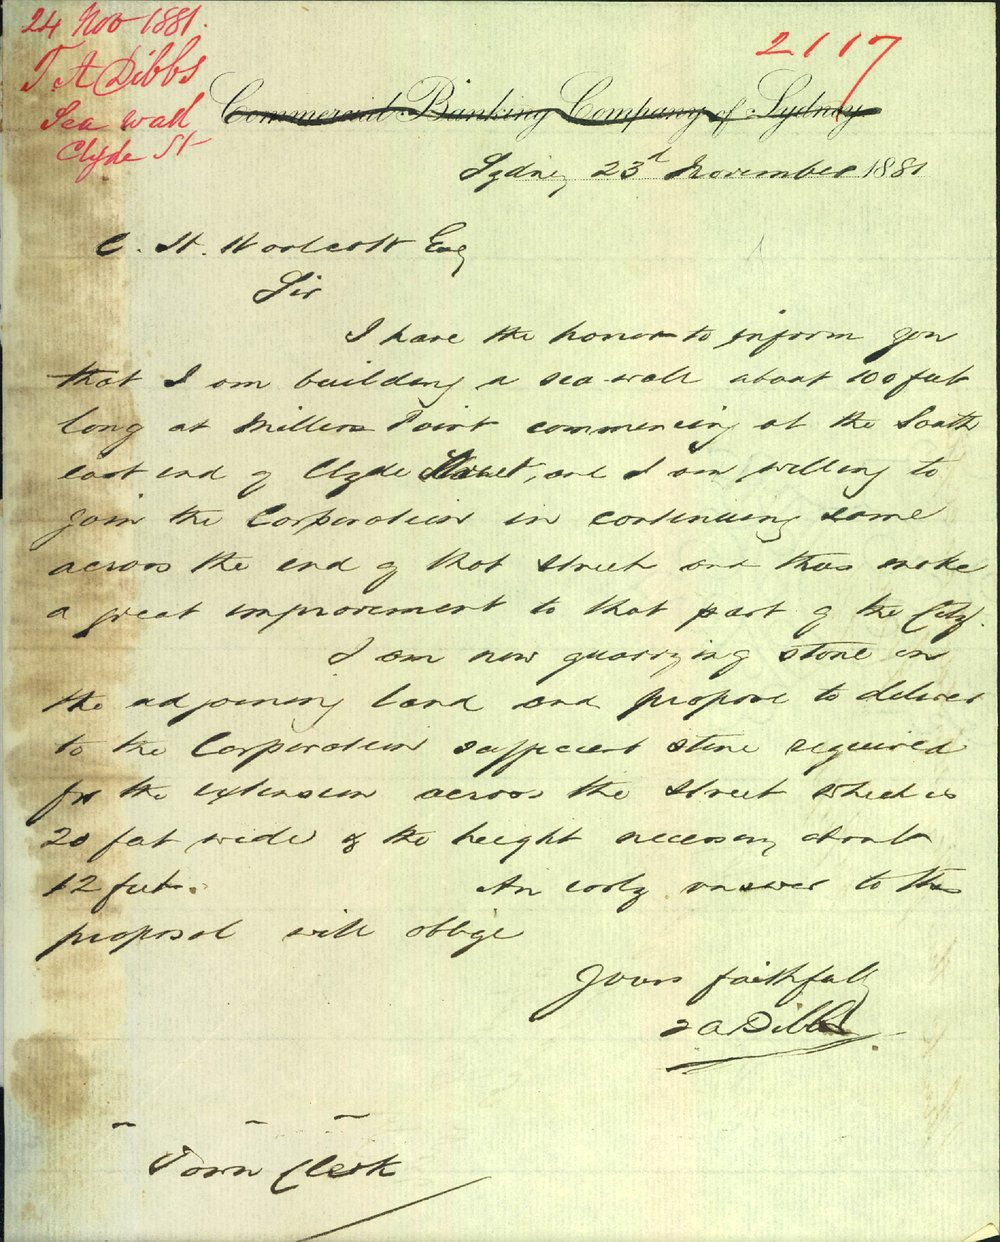 24 Nov 1881.
T. A Dibbs
Sea wall
Clyde St
2117
Commercial Banking Company of Sydney
Sydney 23rd November 1881
C. H. Woolcott Esq
Sir
I have the honor to inform you
that I am building a sea-wall about 100 feet
long at Millers Point commencing at the South
east end of Clyde Street, and I am willing to
join the Corporation in continuing same
across the end of that street and thus make
a great improvement to that part of the City.
I am now quarrying stone in
the adjoining land and propose to deliver
to the Corporation sufficient stone required
for the extension across the street which is
20 feet wide & the height necessary about
12 feet. An early answer to this
proposal will oblige
Yours faithfully
T A Dibbs
Town Clerk